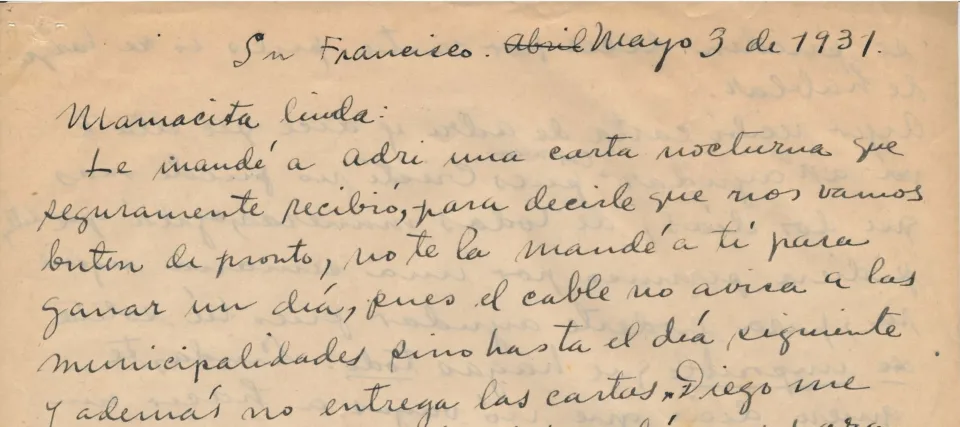 Sn Francisco. Abril Mayo 3 de 1931.
Mamacita linda:
Le mandé a Adri una carta nocturna que
seguramente recibió, para decirle que nos vamos
buten de pronto, no te la mandé a ti para
ganar un día, pues el cable no avisa a las
municipalidades sino hasta el día siguiente
y además no entrega las cartas. Diego me